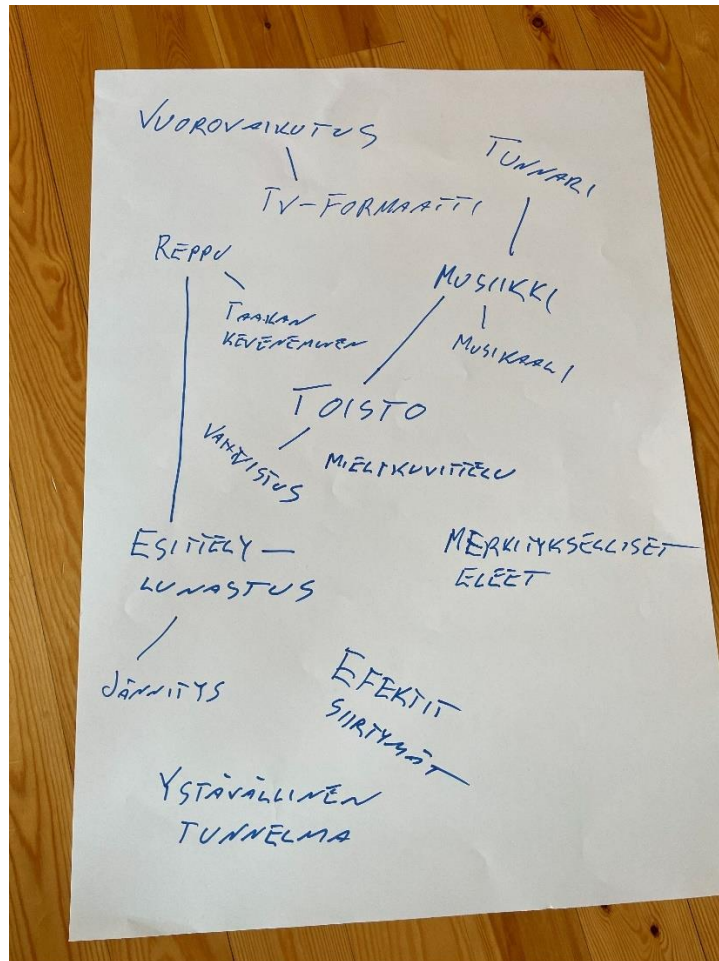 VUOROVAIKUTUS
TUNNARI
TV-FORMAATTI
REPPU
MUSIIKKI
TAAKAN
KEVENEMINEN
MUSIKAALI
TOISTO
VAHVISTUS
MIELIKUVITTELU
ESITTELY –
LUNASTUS
MERKITYKSELLISET
ELEET
JÄNNITYS
EFEKTIT
SIIRTYMÄT
YSTÄVÄLLINEN
TUNNELMA